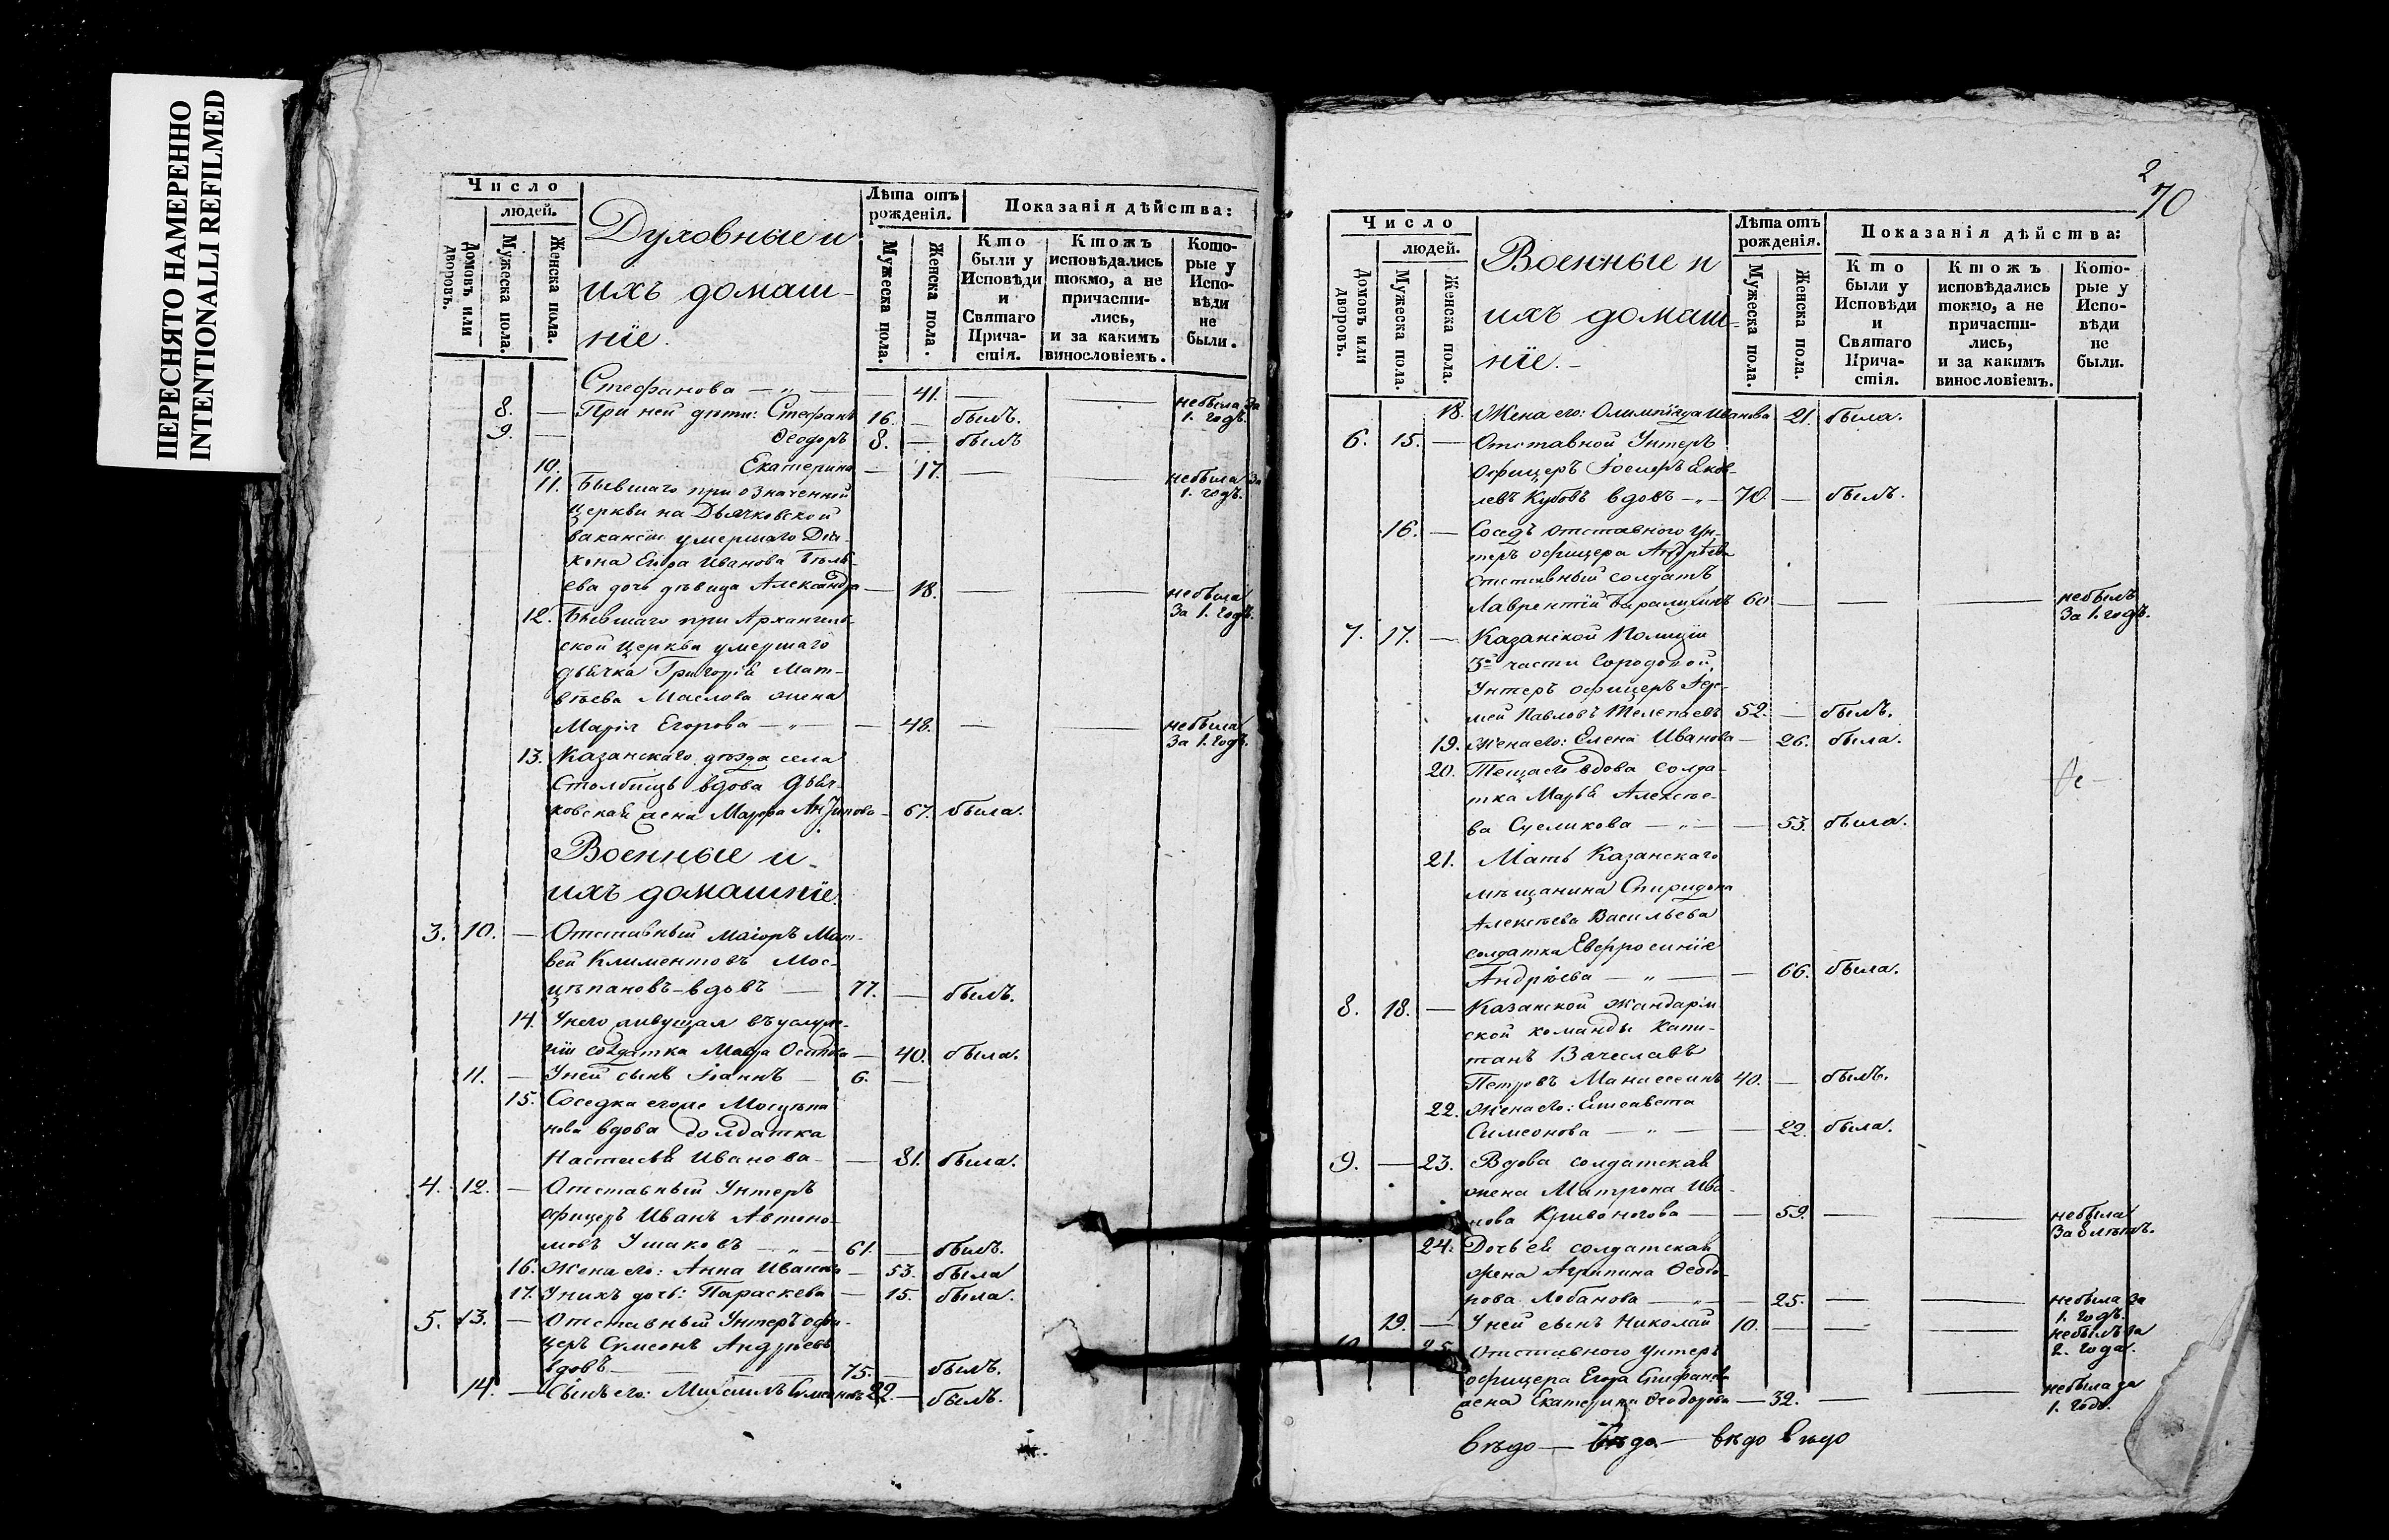 ПЕРЕСНЯТО НАМЕРЕННО
INTENTIONALLI REFILMED
Число
людей.
Домовъ или дворовъ.
Мужеска пола.
Женска пола.
Духовные и
ихъ домаш-
нїе.
Лѣта отъ
рожденія.
Мужеска пола.
Женска пола.
Показанія дѣйства:
Кто
были у
Исповѣди
и
Святаго
Прича-
стія.
Ктожъ
исповѣдались
токмо, а не
причасти-
лись,
и за какимъ
винословіемъ.
Кото-
рые у
Испо-
вѣди
не
были.
Стефанова — „ — — 41. — — небыла за 1. годъ.
8. — При ней дѣти: Стефанъ 16. — былъ.
9. — Ѳеодоръ 8. — былъ
10. Екатерина — 17. — — небыла за 1. годъ.
11. Бывшаго при означенной
церкви на Дьячковской
вакансіи умершаго Дья-
кона Егора Иванова Бѣль-
ева дочь дѣвица Александра — 18. — — небыла за 1. годъ.
12. Бывшаго при Архангель-
ской церкви умершаго
дьячка Григорія Мат-
вѣева Маслова жена
Марія Егорова — „ — — 48. — — небыла за 1. годъ.
13. Казанскаго уѣзда села
Столбищъ вдова дьяч-
ковская жена Марфа — 67. была.
Военные и
ихъ домашнїе.
3. 10. — Отставный Маіоръ Мат-
вей Климентовъ Мос-
цѣпановъ - вдовъ — 77. — былъ.
14. У него живущая въ услуже-
ніи солдатка Мавра Осипова — 40. была.
11. — У ней сынъ Іоаннъ — 6. —
15. Соседка егоже Мосцѣпа
нова вдова солдатка
Настасья Иванова — — 81. была.
4. 12. — Отставный Унтеръ
офицеръ Иванъ Автоно-
мовъ Ушаковъ — „ — 61. — былъ.
16. Жена его: Анна Иванова — 53. была
17. У нихъ дочь: Параскева — 15. была.
5. 13. — Отставный Унтеръ офи-
церъ Симеонъ Андреевъ
вдовъ — 75. — былъ.
14. — Сынъ его: Михаилъ Симеоновъ 22. — былъ.
2
70
Число
людей.
Домовъ или дворовъ.
Мужеска пола.
Женска пола.
Военные и
ихъ домаш-
нїе. -
Лѣта отъ
рожденія.
Мужеска пола.
Женска пола.
Показанія дѣйства:
Кто
были у
Исповѣди
и
Святаго
Прича-
стія.
Ктожъ
исповѣдались
токмо, а не
причасти-
лись,
и за какимъ
винословіемъ.
Кото-
рые у
Испо-
вѣди
не
были.
18. Жена его: Олимпіада Иванова 21. была.
6. 15. — Отставной Унтеръ
офицеръ Іосифъ Яков-
левъ вдовъ - „ - 70. — былъ.
16. — Соседъ отставного Ун-
теръ офицера Андрѣева
Отставный солдатъ
Лаврентій 60 — — — небылъ за 1. годъ.
7. 17. — Казанской Полиціи
3й части Городовой,
Унтеръ офицеръ Ер-
мей Павловъ Телепаевъ 52. — былъ.
19. Жена его: Елена Иванова — 26. была.
20. Теща его вдова солда-
тка Марья Алексее-
ва — „ — — 53. была.
21. Мать Казанскаго
мѣщанина Спиридона
Алексѣева Васильева
солдатка Евфросинія
Андрѣева — „ — — 66. была.
8. 18. — Казанской Жандарм
ской команды Капи-
танъ Вячеславъ
Петровъ Манассеинъ 40. — былъ.
22. Жена его: Елисавета
Симеонова — „ — — 22. была.
9. — 23. Вдова солдатская
жена Матрона Ива-
нова Кривоногова — — 59. — — небыла за 8 лѣтъ.
24. Дочь ея солдатская
жена Агрипина Ѳеодо-
рова Лобанова — „ — — 25. — — небыла за 1. годъ.
19. — У ней сынъ Николай 10. — — — небылъ за 2. года.
10. 25. Отставного унтеръ
офицера Егора Епифанова
жена Екатерина Ѳеодорова — 32. — — небыла за 1. годъ.
вѣдо — вѣдо — вѣдо вѣдо